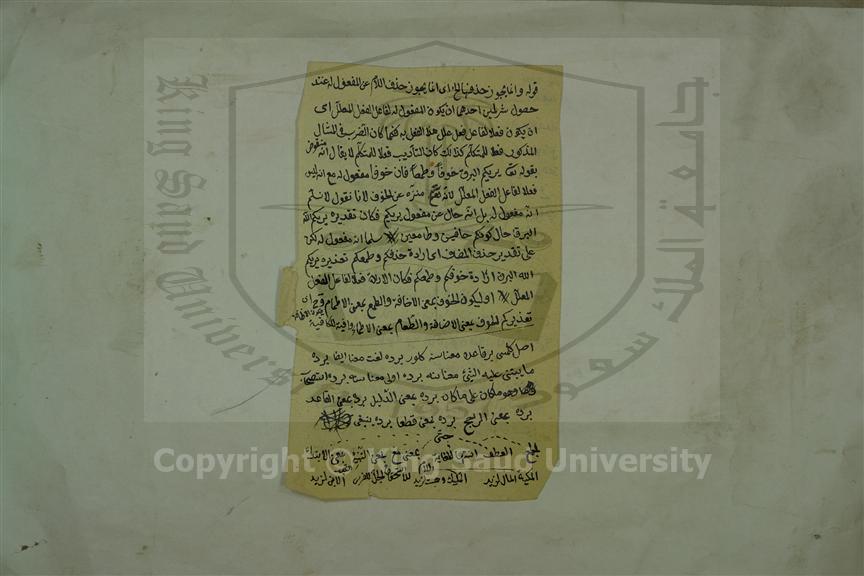 قوله وانما يجوز حذفها الخ اى انما يجوز حذف اللام عن المفعول له عند
حصول شرطين احدهما ان يكون المفعول له لفاعل الفعل المعلل اى
ان يكون فعلا لفاعل فعل علل هذا الفعل به كما كان الضرب فى المثال
المذكور فعلا للمتكلم كذلك كان التأديب فعلا للمتكلم لا يقال انه منقوض
بقوله تعا يريكم البرق خوفا وطمعا فان خوفا مفعول له مع انه ليس
فعلا لفاعل الفعل المعلل لانه تع منزه عن الخوف لانا نقول لا نسلم
انه مفعول له بل انه حال عن مفعول يريكم فكان تقديره يريكم الله
البرق حال كونكم خائفين وطامعين سلمنا انه مفعول له لكن
على تقدير حذف المضاف اى ارادة خوفكم وطمعكم تقديره يريكم
الله البرق ارادة خوفكم وطمعكم فكان الارادة فعلا لفاعل الفعل
المعلل او ليكون الخوف بمعنى الاخافة والطمع بمعنى الاطماع
الخوف بمعنى الاخافة والطمع بمعنى الاطماع وافية للكافية
اصل كلمسى بر قاعده معناسنه كلور برده لغت معنا ايفا برده
ما يبتنى عليه الشئ معناسنه برده اولى معناسنه برده
ما كان على ما كان برده بمعنى الدليل برده بمعنى القاعده
برده بمعنى الراجح برده بمعنى قطعا برده ينبغى
حتى
للجمع العطف للغاية بمعنى مع بمعنى بمعنى الابتداء
المال لزيد لزيد الابن لزيد
Copyright © King Saud University
King Saud University
جامعة الملك سعود
1957